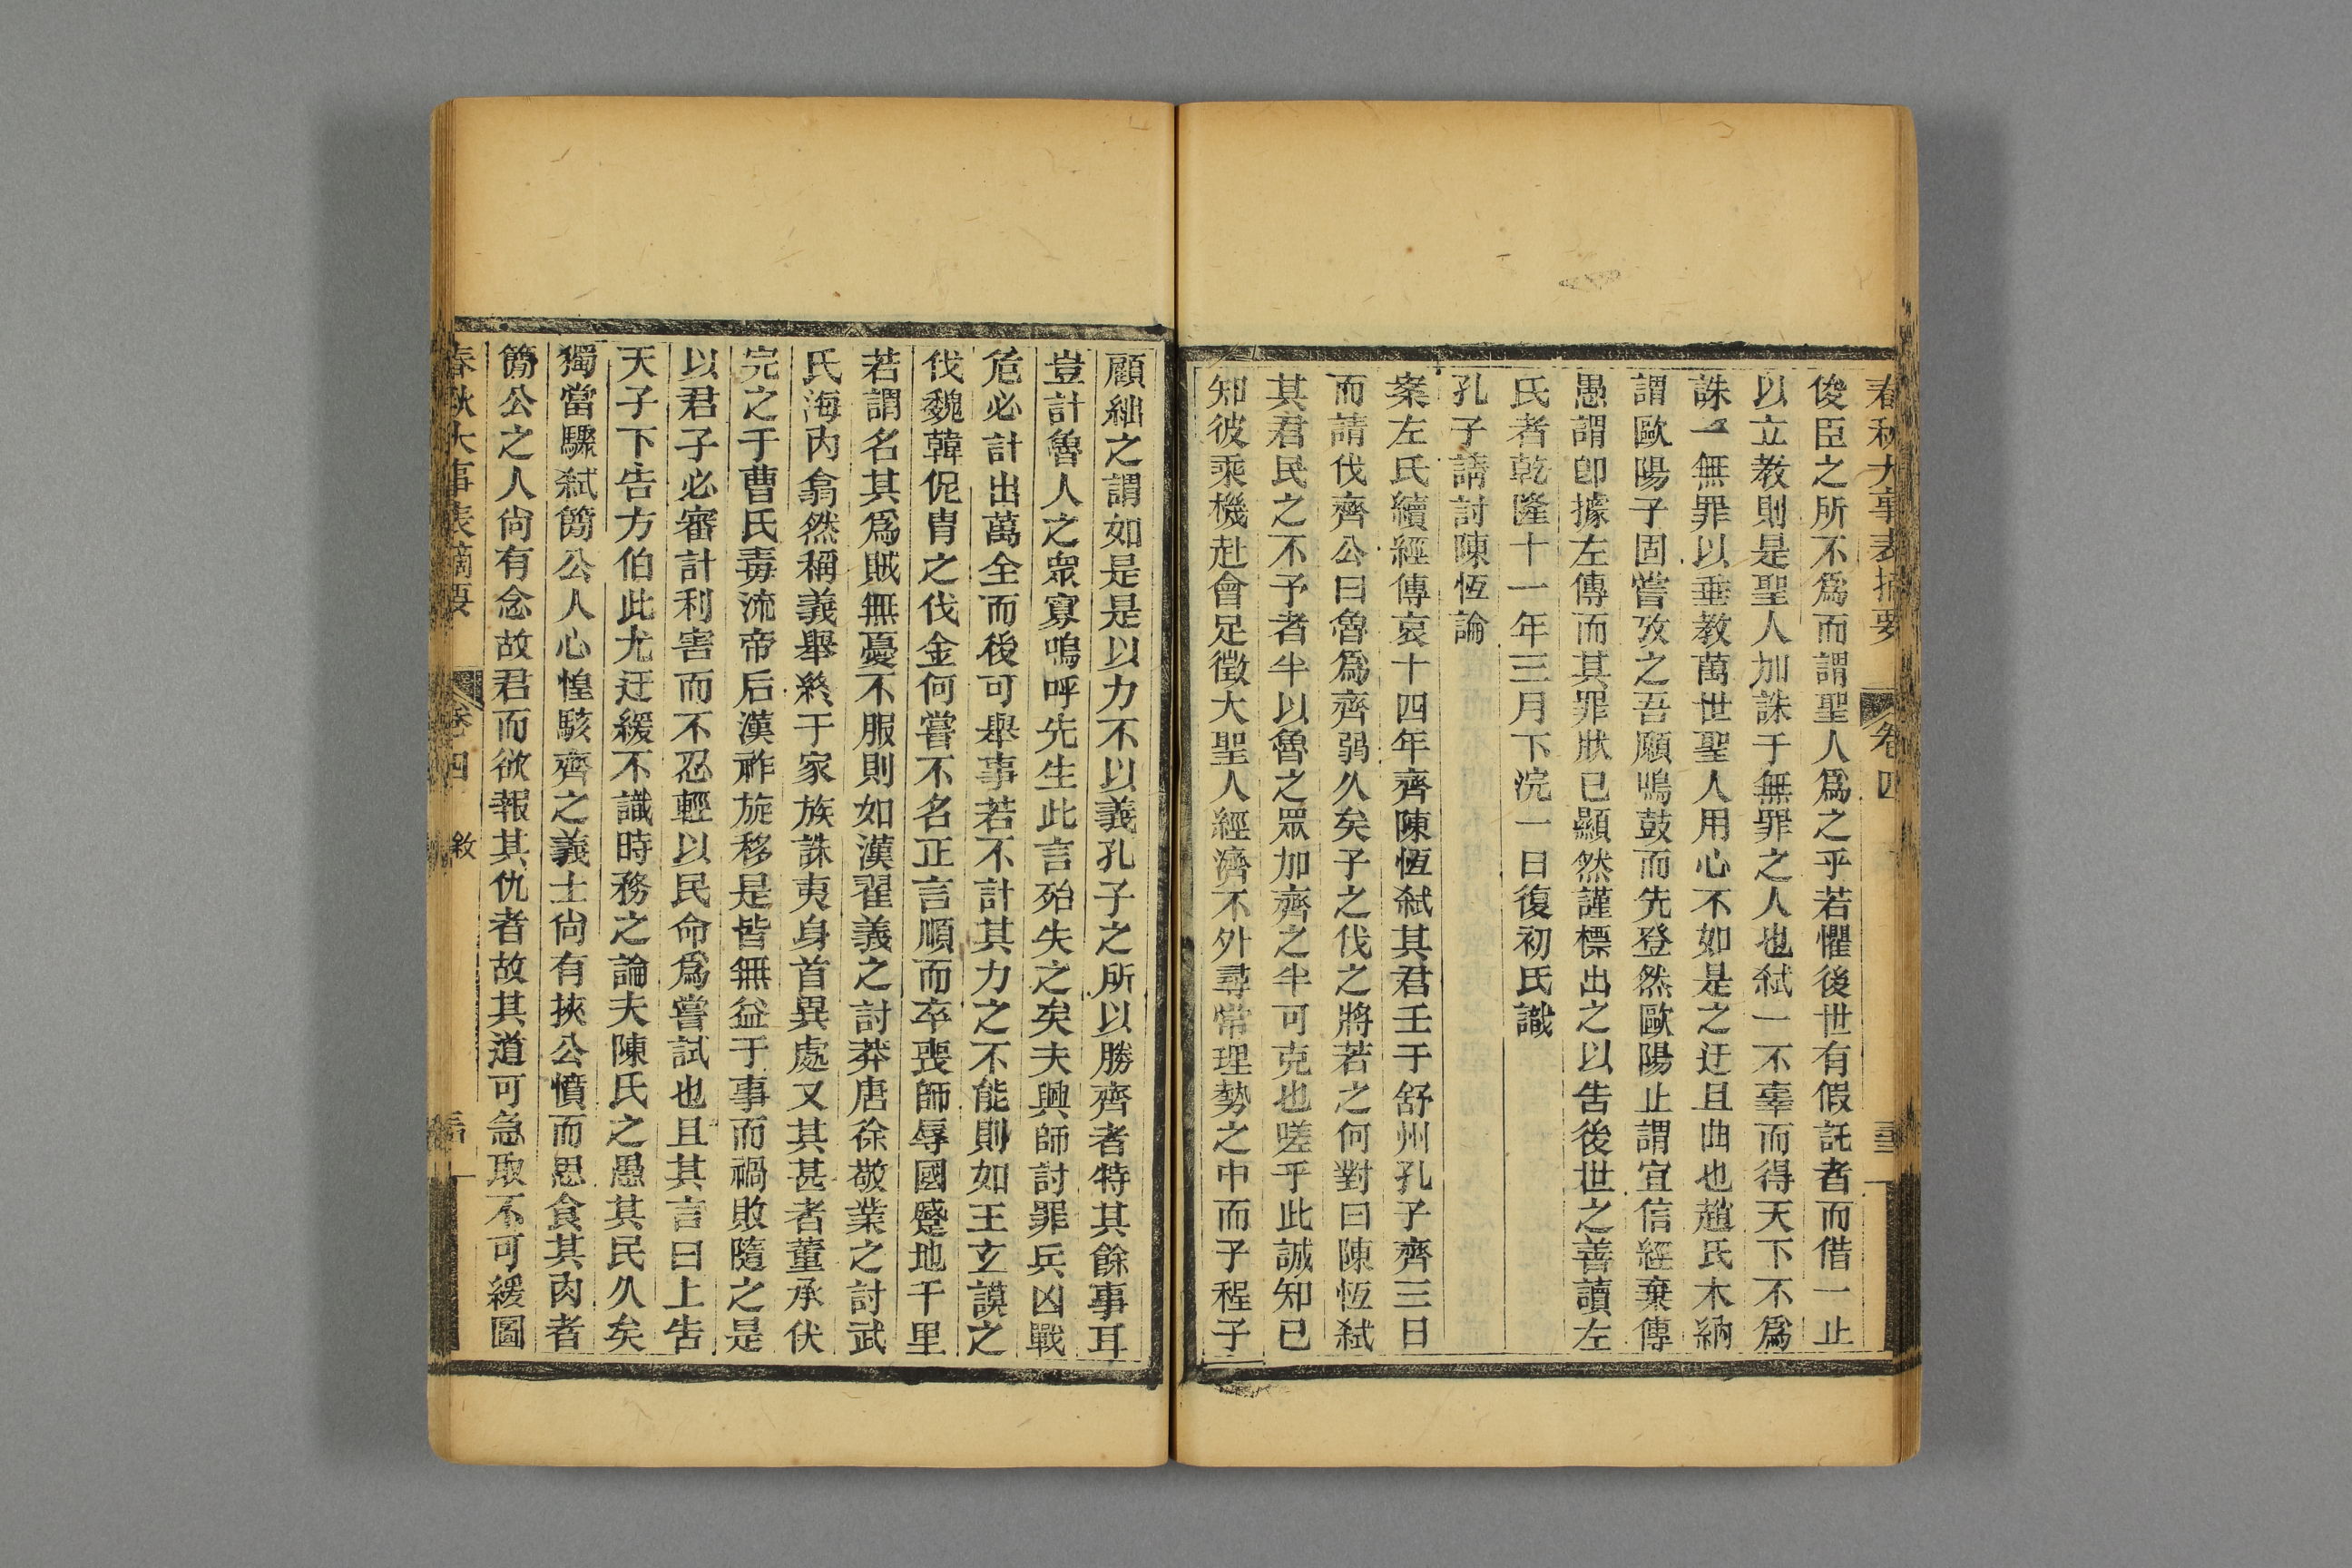 春秋大事表摘要 卷四
俊臣之所不爲而謂聖人爲之乎若懼後世有假託者而借一止
以立教則是聖人加誅于無罪之人也弑一不辜而得天下不爲
誅一無罪以垂教萬世聖人用心不如是之迂且曲也趙氏木納
謂歐陽子固嘗攷之吾願鳴鼓而先登然歐陽止謂宜信經棄傳
愚謂卽據左傳而其罪狀已顯然謹標出之以告後世之善讀左
氏者乾隆十一年三月下浣一日復初氏識
孔子請討陳恆論
案左氏續經傳哀十四年齊陳恆弑其君壬于舒州孔子齊三日
而請伐齊公曰魯爲齊弱久矣子之伐之將若之何對曰陳恆弑
其君民之不予者半以魯之眾加齊之半可克也嗟乎此誠知已
知彼乘機赴會足徵大聖人經濟不外尋常理勢之中而子程子
顧絀之謂如是是以力不以義孔子之所以勝齊者特其餘事耳
豈計魯人之眾寡嗚呼先生此言殆失之矣夫興師討罪兵凶戰
危必計出萬全而後可舉事若不計其力之不能則如王玄謨之
伐魏韓侂胄之伐金何嘗不名正言順而卒喪師辱國蹙地千里
若謂名其爲賊無憂不服則如漢翟義之討莽唐徐敬業之討武
氏海內翕然稱義舉終于家族誅夷身首異處又其甚者董承伏
完之于曹氏毒流帝后漢祚旋移是皆無益于事而禍敗隨之是
以君子必審計利害而不忍輕以民命爲嘗試也且其言曰上告
天子下告方伯此尤迂緩不識時務之論夫陳氏之愚其民久矣
獨當驟弑簡公人心惶駭齊之義士尙有挾公憤而思食其肉者
簡公之人尙有念故君而欲報其仇者故其道可急取不可緩圖
春秋大事表摘要 卷四 敘